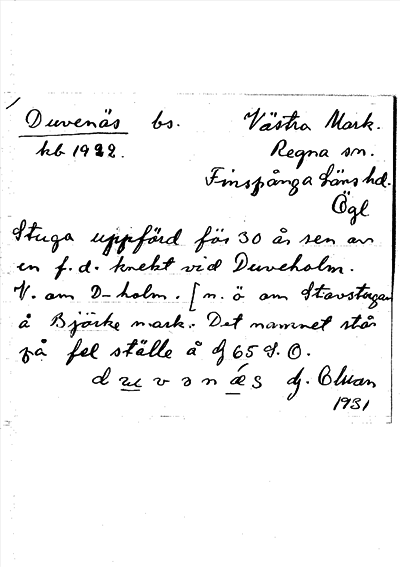 Duvenäs bs. Västra Mark.
kb 1922. Regna sn.
Finspånga läns hd.
Ögl
Stuga uppförd för 30 år sen av
en f.d. knekt vid Duveholm.
V. om D-holm. [n. ö om Stavstugan
å Björke mark. Det namnet står
på fel ställe å dj 65 S.O.
d uu v ə n ǽ s dj.
1931